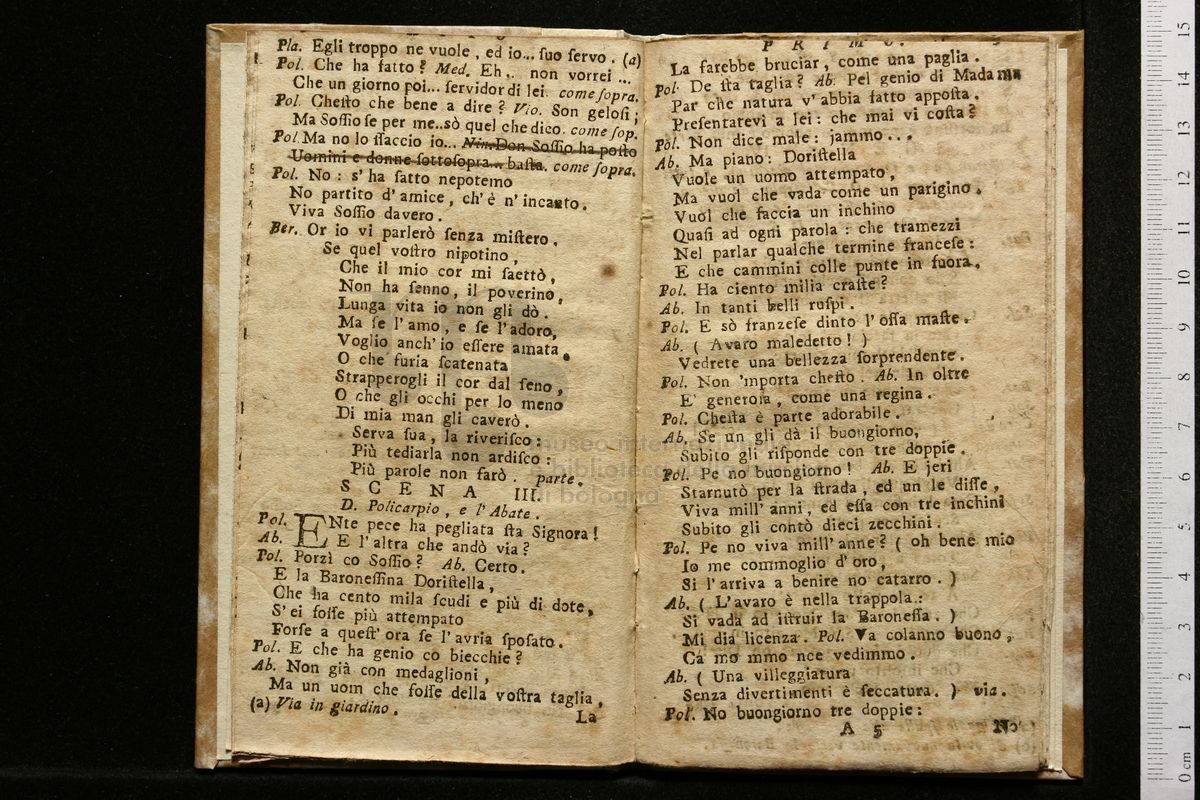 Pla. Egli troppo ne vuole, ed io... ſuo ſervo. (a)
Pol. Che ha fatto? Med. Eh.. non vorrei ...
Che un giorno poi... ſervidor di lei. come ſopra.
Pol. Cheſto che bene a dire? Vio. Son geloſi;
Ma Soſſio ſe per me..sò quel che dico. come ſop.
Pol. Ma no lo ſſaccio io... Nin. Don Soſſio ha poſto
Uomini e donne ſottoſopra... baſta. come ſopra.
Pol. No: s'ha fatto nepotemo
No partito d'amice, ch'è n'incanto.
Viva Soſſio davero.
Ber. Or io vi parlerò ſenza miſtero,
Se quel voſtro nipotino,
Che il mio cor mi ſaettò,
Non ha ſenno, il poverino,
Lunga vita io non gli dò.
Ma ſe l'amo, e ſe l'adoro,
Voglio anch'io eſſere amata.
O che furia ſcatenata
Strapperogli il cor dal ſeno,
O che gli occhi per lo meno
Di mia man gli caverò.
Serva ſua, la riveriſco:
Più tediarla non ardiſco:
Più parole non farò. parte.
SCENA III.
D. Policarpio, e l'Abate.
Pol. ENte pece ha pegliata ſta Signora!
Ab. E l'altra che andò via?
Pol. Porzì co Soſſio? Ab. Certo.
E la Baroneſſina Doriſtella,
Che ha cento mila ſcudi e più di dote,
S'ei foſſe più attempato
Forſe a queſt'ora ſe l'avria ſpoſato.
Pol. E che ha genio co biecchie?
Ab. Non già con medaglioni,
Ma un uom che foſſe della voſtra taglia,
(a) Via in giardino.
La
PRIMO.
La farebbe bruciar, come una paglia.
Pol. De ſta taglia? Ab. Pel genio di Madama
Par che natura v'abbia fatto appoſta.
Preſentatevi a lei: che mai vi coſta?
Pol. Non dice male: jammo...
Ab. Ma piano: Doriſtella
Vuole un uomo attempato,
Ma vuol che vada come un parigino.
Vuol che faccia un inchino
Quaſi ad ogni parola: che tramezzi
Nel parlar qualche termine franceſe:
E che cammini colle punte in fuora.
Pol. Ha ciento milia craſte?
Ab. In tanti belli ruſpi.
Pol. E sò franzeſe dinto l'oſſa maſte.
Ab. (Avaro maledetto!)
Vedrete una bellezza ſorprendente.
Pol. Non 'mporta cheſto. Ab. In oltre
E' generoſa, come una regina.
Pol. Cheſta è parte adorabile.
Ab. Se un gli dà il buongiorno,
Subito gli riſponde con tre doppie.
Pol. Pe no buongiorno! Ab. E jeri
Starnutò per la ſtrada, ed un le diſſe,
Viva mill'anni, ed eſſa con tre inchini
Subito gli contò dieci zecchini.
Pol. Pe no viva mill'anne? (oh bene mio
Io me commoglio d'oro,
Si l'arriva a benire no catarro.)
Ab. (L'avaro è nella trappola:
Si vada ad iſtruir la Baroneſſa.)
Mi dia licenza. Pol. Va colanno buono,
Ca mo mmo nce vedimmo.
Ab. (Una villeggiatura
Senza divertimenti è ſeccatura.) via.
Pol. No buongiorno tre doppie:
A 5
No